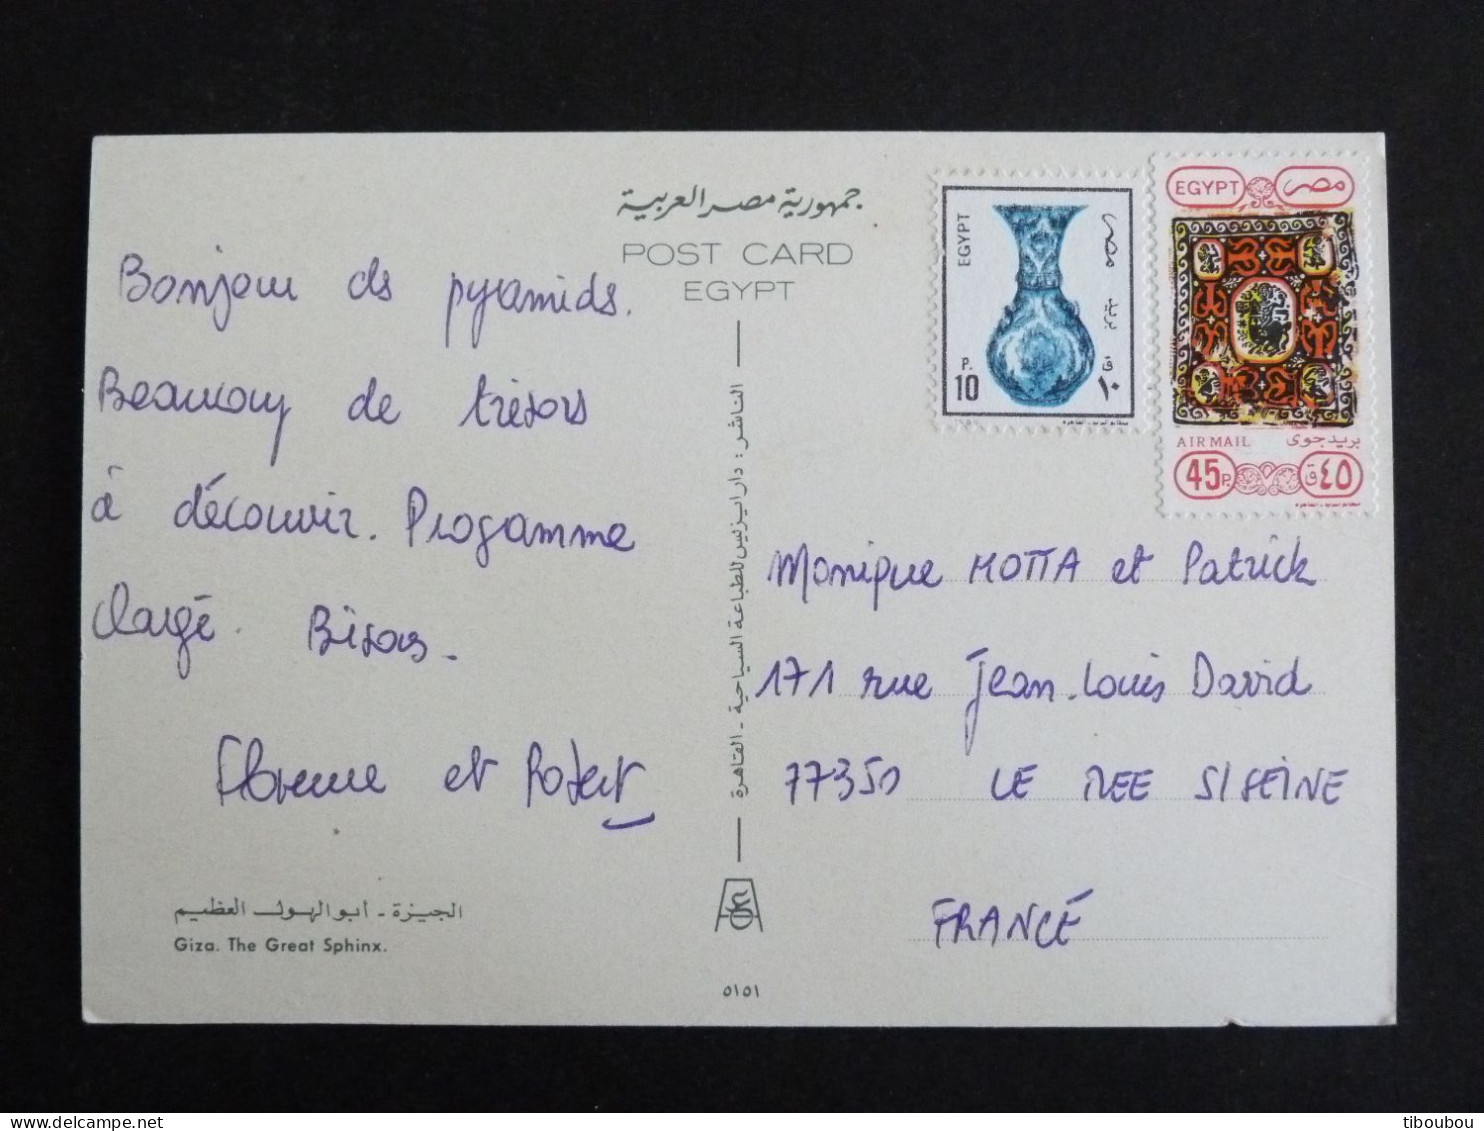 جمهورية مصر العربية
POST CARD
EGYPT
Bonjour ds pyramids.
Beaucoup de trésors
à découvrir. Progamme
chargé. Bisous.
Florence et Robert
الجيزة - أبو الهول العظيم
Giza. The Great Sphinx.
الناشر: دار ايزيس للطباعة السياحية - القاهرة
٥١٥١
EGYPT
مصر
بريد
P.
10
ق
١٠
EGYPT مصر
AIR MAIL بريد جوى
45P. ٤٥ق
Monique MOTTA et Patrick
171 rue Jean-Louis David
77350 LE MEE S/SEINE
FRANCE
tiboubou